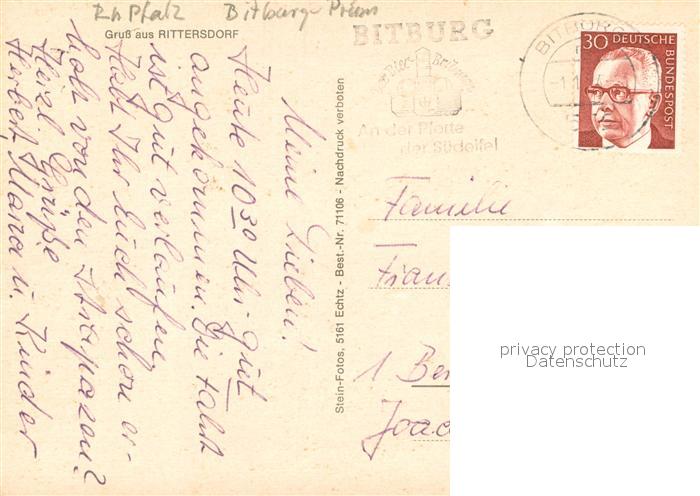 Rh Pfalz Bitburg-Prüm
Gruß aus RITTERSDORF
Meine Lieben!
Heute 10 30 Uhr gut
angekommen. Die Fahrt
ist gut verlaufen
Habt Ihr Euch schon er-
holt von den Strapazen?
Herzl. Grüße
Herbert, Maria u. Kinder
Stein-Fotos, 5161 Echtz - Best.-Nr. 71106 - Nachdruck verboten
BITBURG
An der Pforte
der Südeifel
BITBURG
30 DEUTSCHE
BUNDESPOST
Familie
1 Ber
Joac
privacy protection
Datenschutz